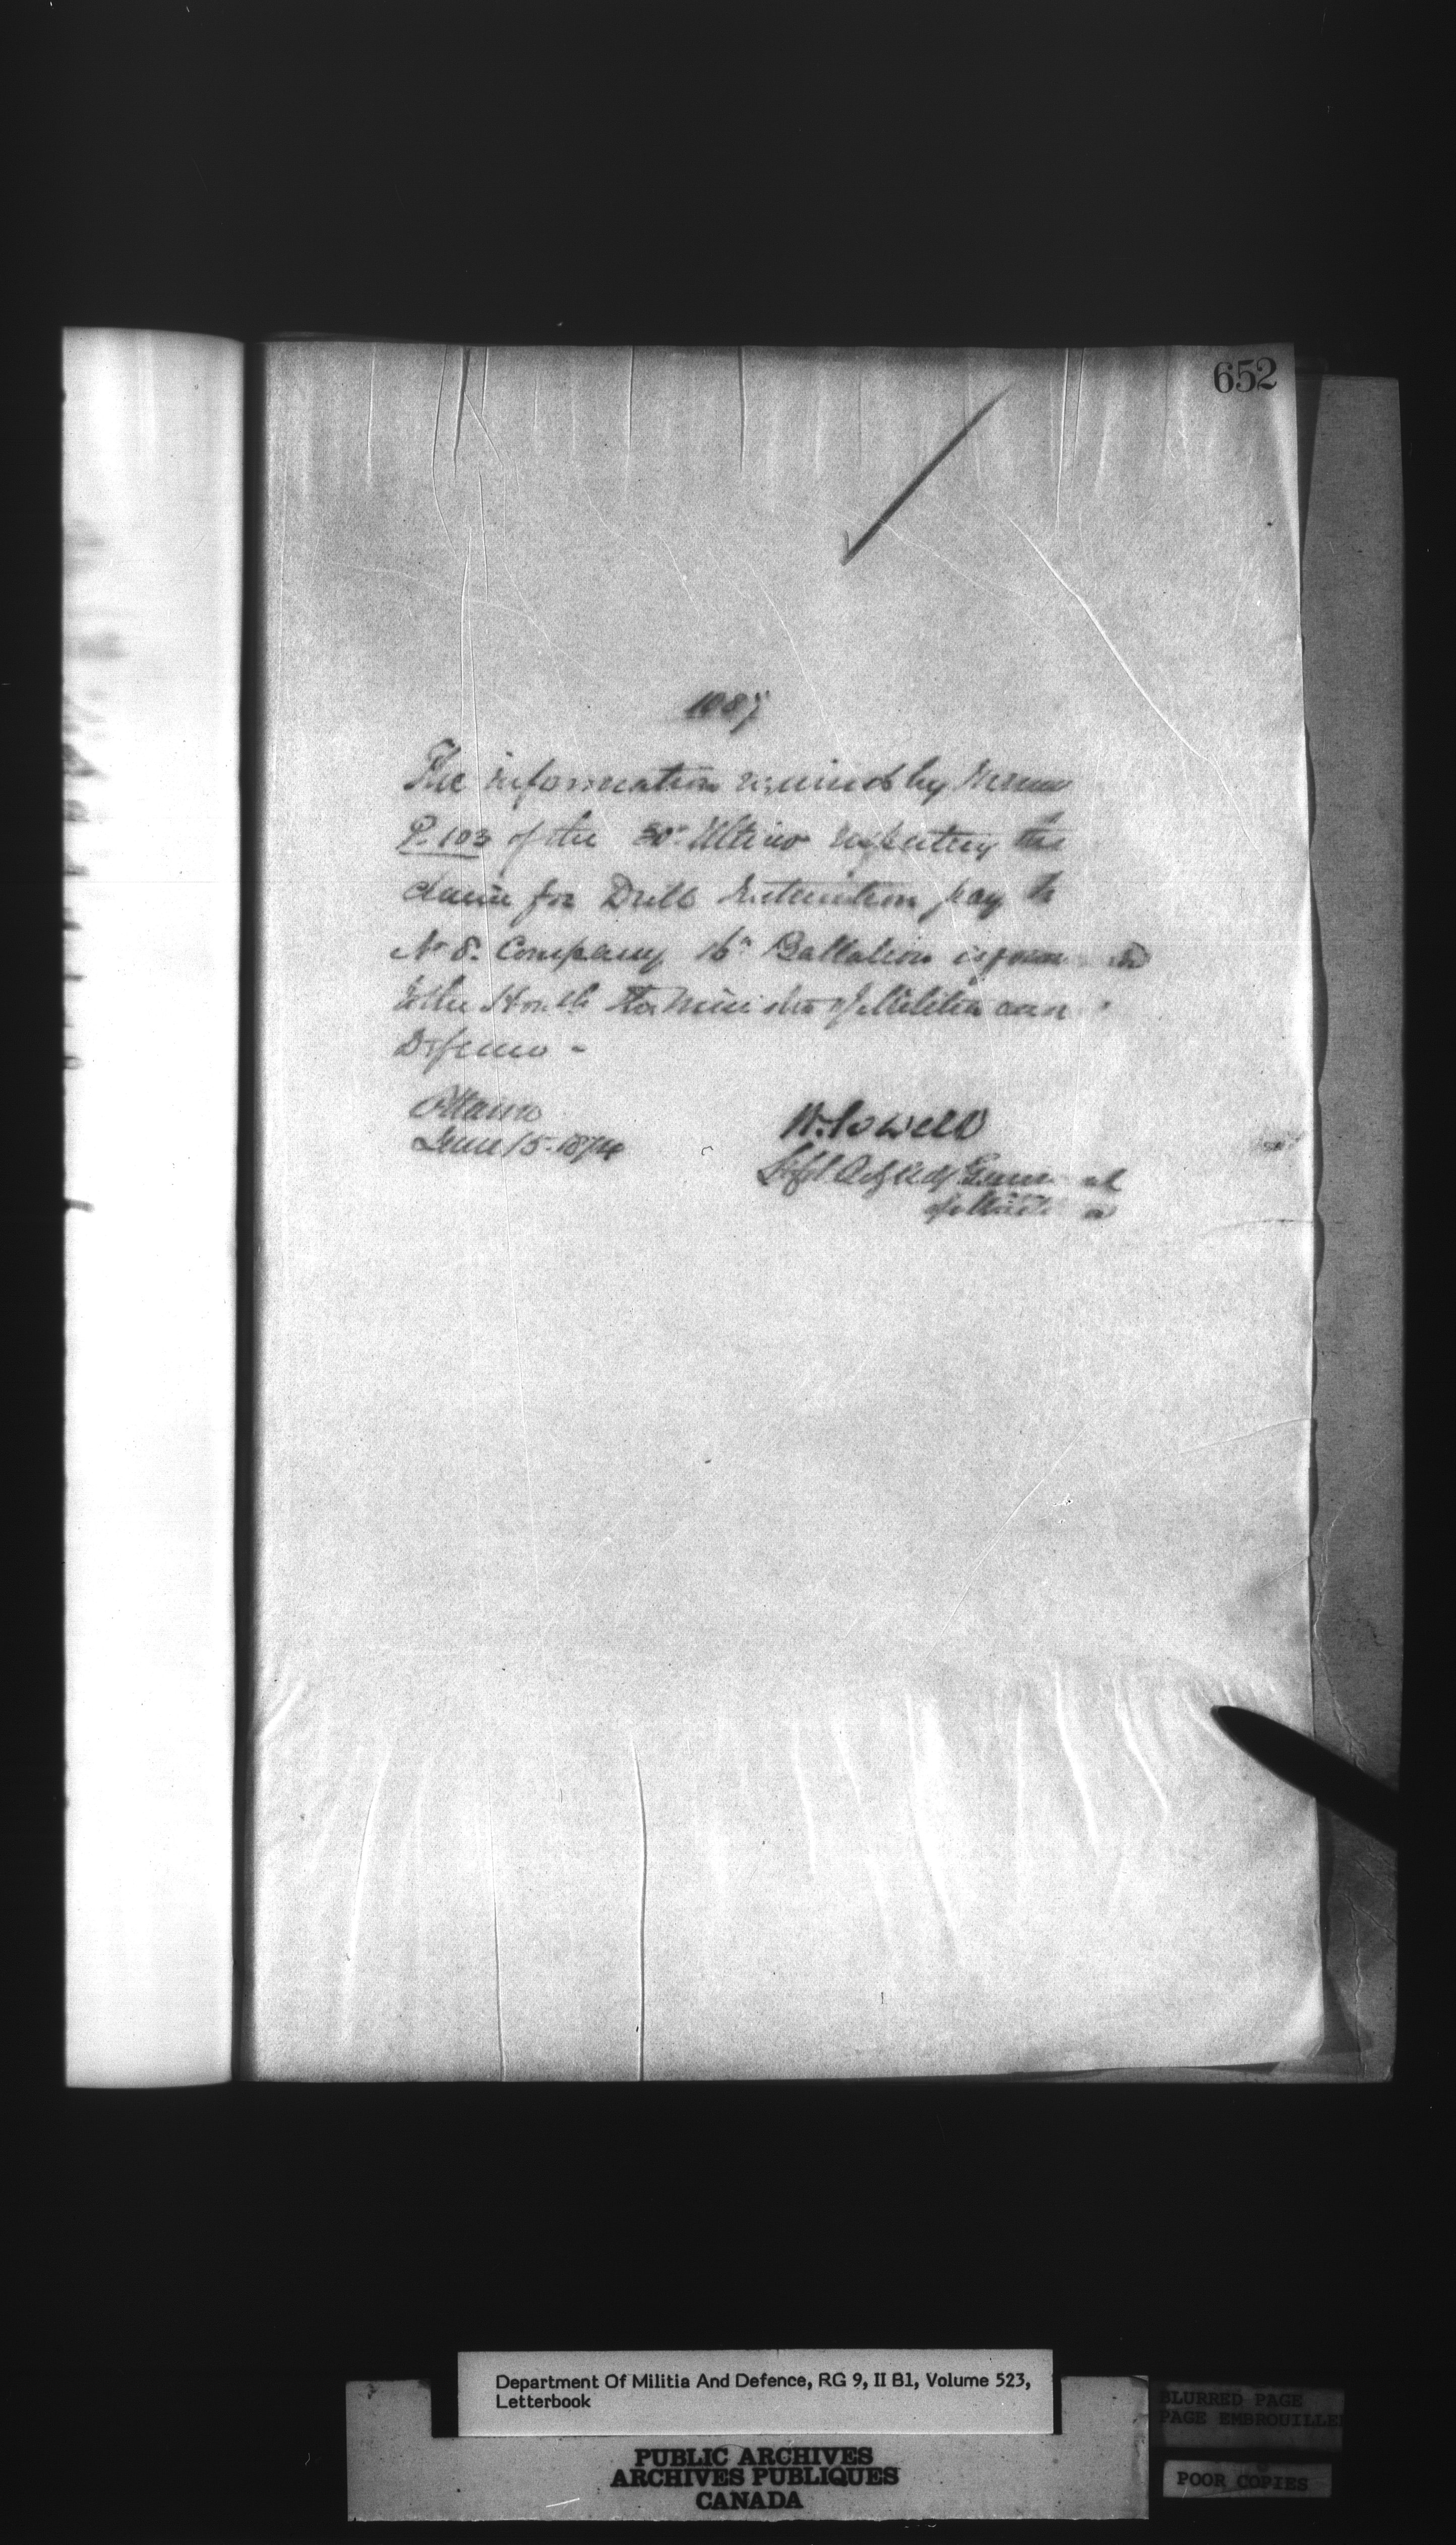 652
1087
The information required by Memo
P. 103 of the 30th Ultimo respecting the
claim for Drill Instruction pay to
No 8. Company 16th Battalion is forwarded
to the Honble the Minister of Militia and
Defence -
Ottawa
June 15. 1874
W. Powell
Lt Col Actg Adjt General
of Militia
Department Of Militia And Defence, RG 9, II B1, Volume 523,
Letterbook
BLURRED PAGE
PAGE EMBROUILLE
PUBLIC ARCHIVES
ARCHIVES PUBLIQUES
CANADA
POOR COPIES